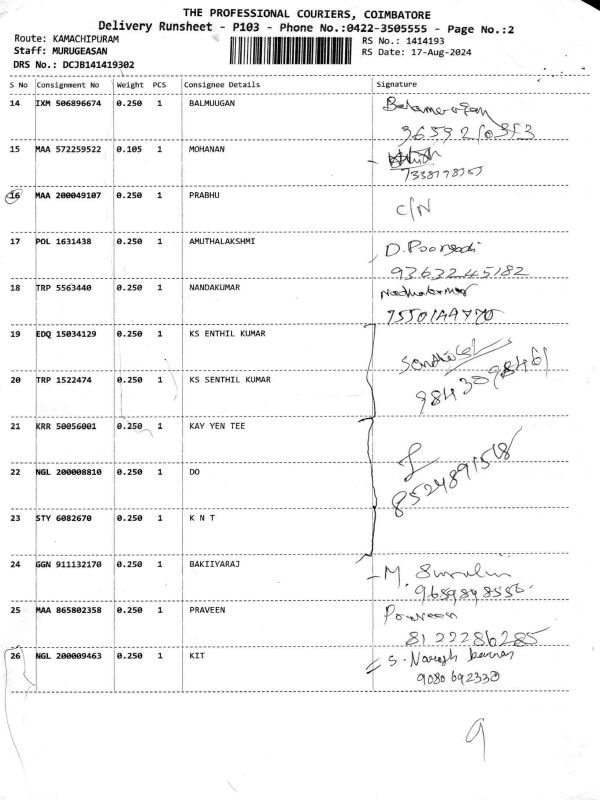 THE PROFESSIONAL COURIERS, COIMBATORE
Delivery Runsheet - P103 - Phone No.:0422-3505555 - Page No.:2
Route: KAMACHIPURAM RS No.: 1414193
Staff: MURUGEASAN RS Date: 17-Aug-2024
DRS No.: DCJB141419302
S No Consignment No Weight PCS Consignee Details Signature
14 IXM 506896674 0.250 1 BALMUUGAN
15 MAA 572259522 0.105 1 MOHANAN
16 MAA 200049107 0.250 1 PRABHU C/N
17 POL 1631438 0.250 1 AMUTHALAKSHMI D. Poongodi
9363245182
18 TRP 5563440 0.250 1 NANDAKUMAR
19 EDQ 15034129 0.250 1 KS ENTHIL KUMAR
20 TRP 1522474 0.250 1 KS SENTHIL KUMAR
9843098461
21 KRR 50056001 0.250 1 KAY YEN TEE
22 NGL 200008810 0.250 1 DO
8524891518
23 STY 6082670 0.250 1 K N T
24 GGN 911132170 0.250 1 BAKIIYARAJ M.
9689848556
25 MAA 865802358 0.250 1 PRAVEEN Praveen
8122286285
26 NGL 200009463 0.250 1 KIT S. Naresh kumar
9080692330
9